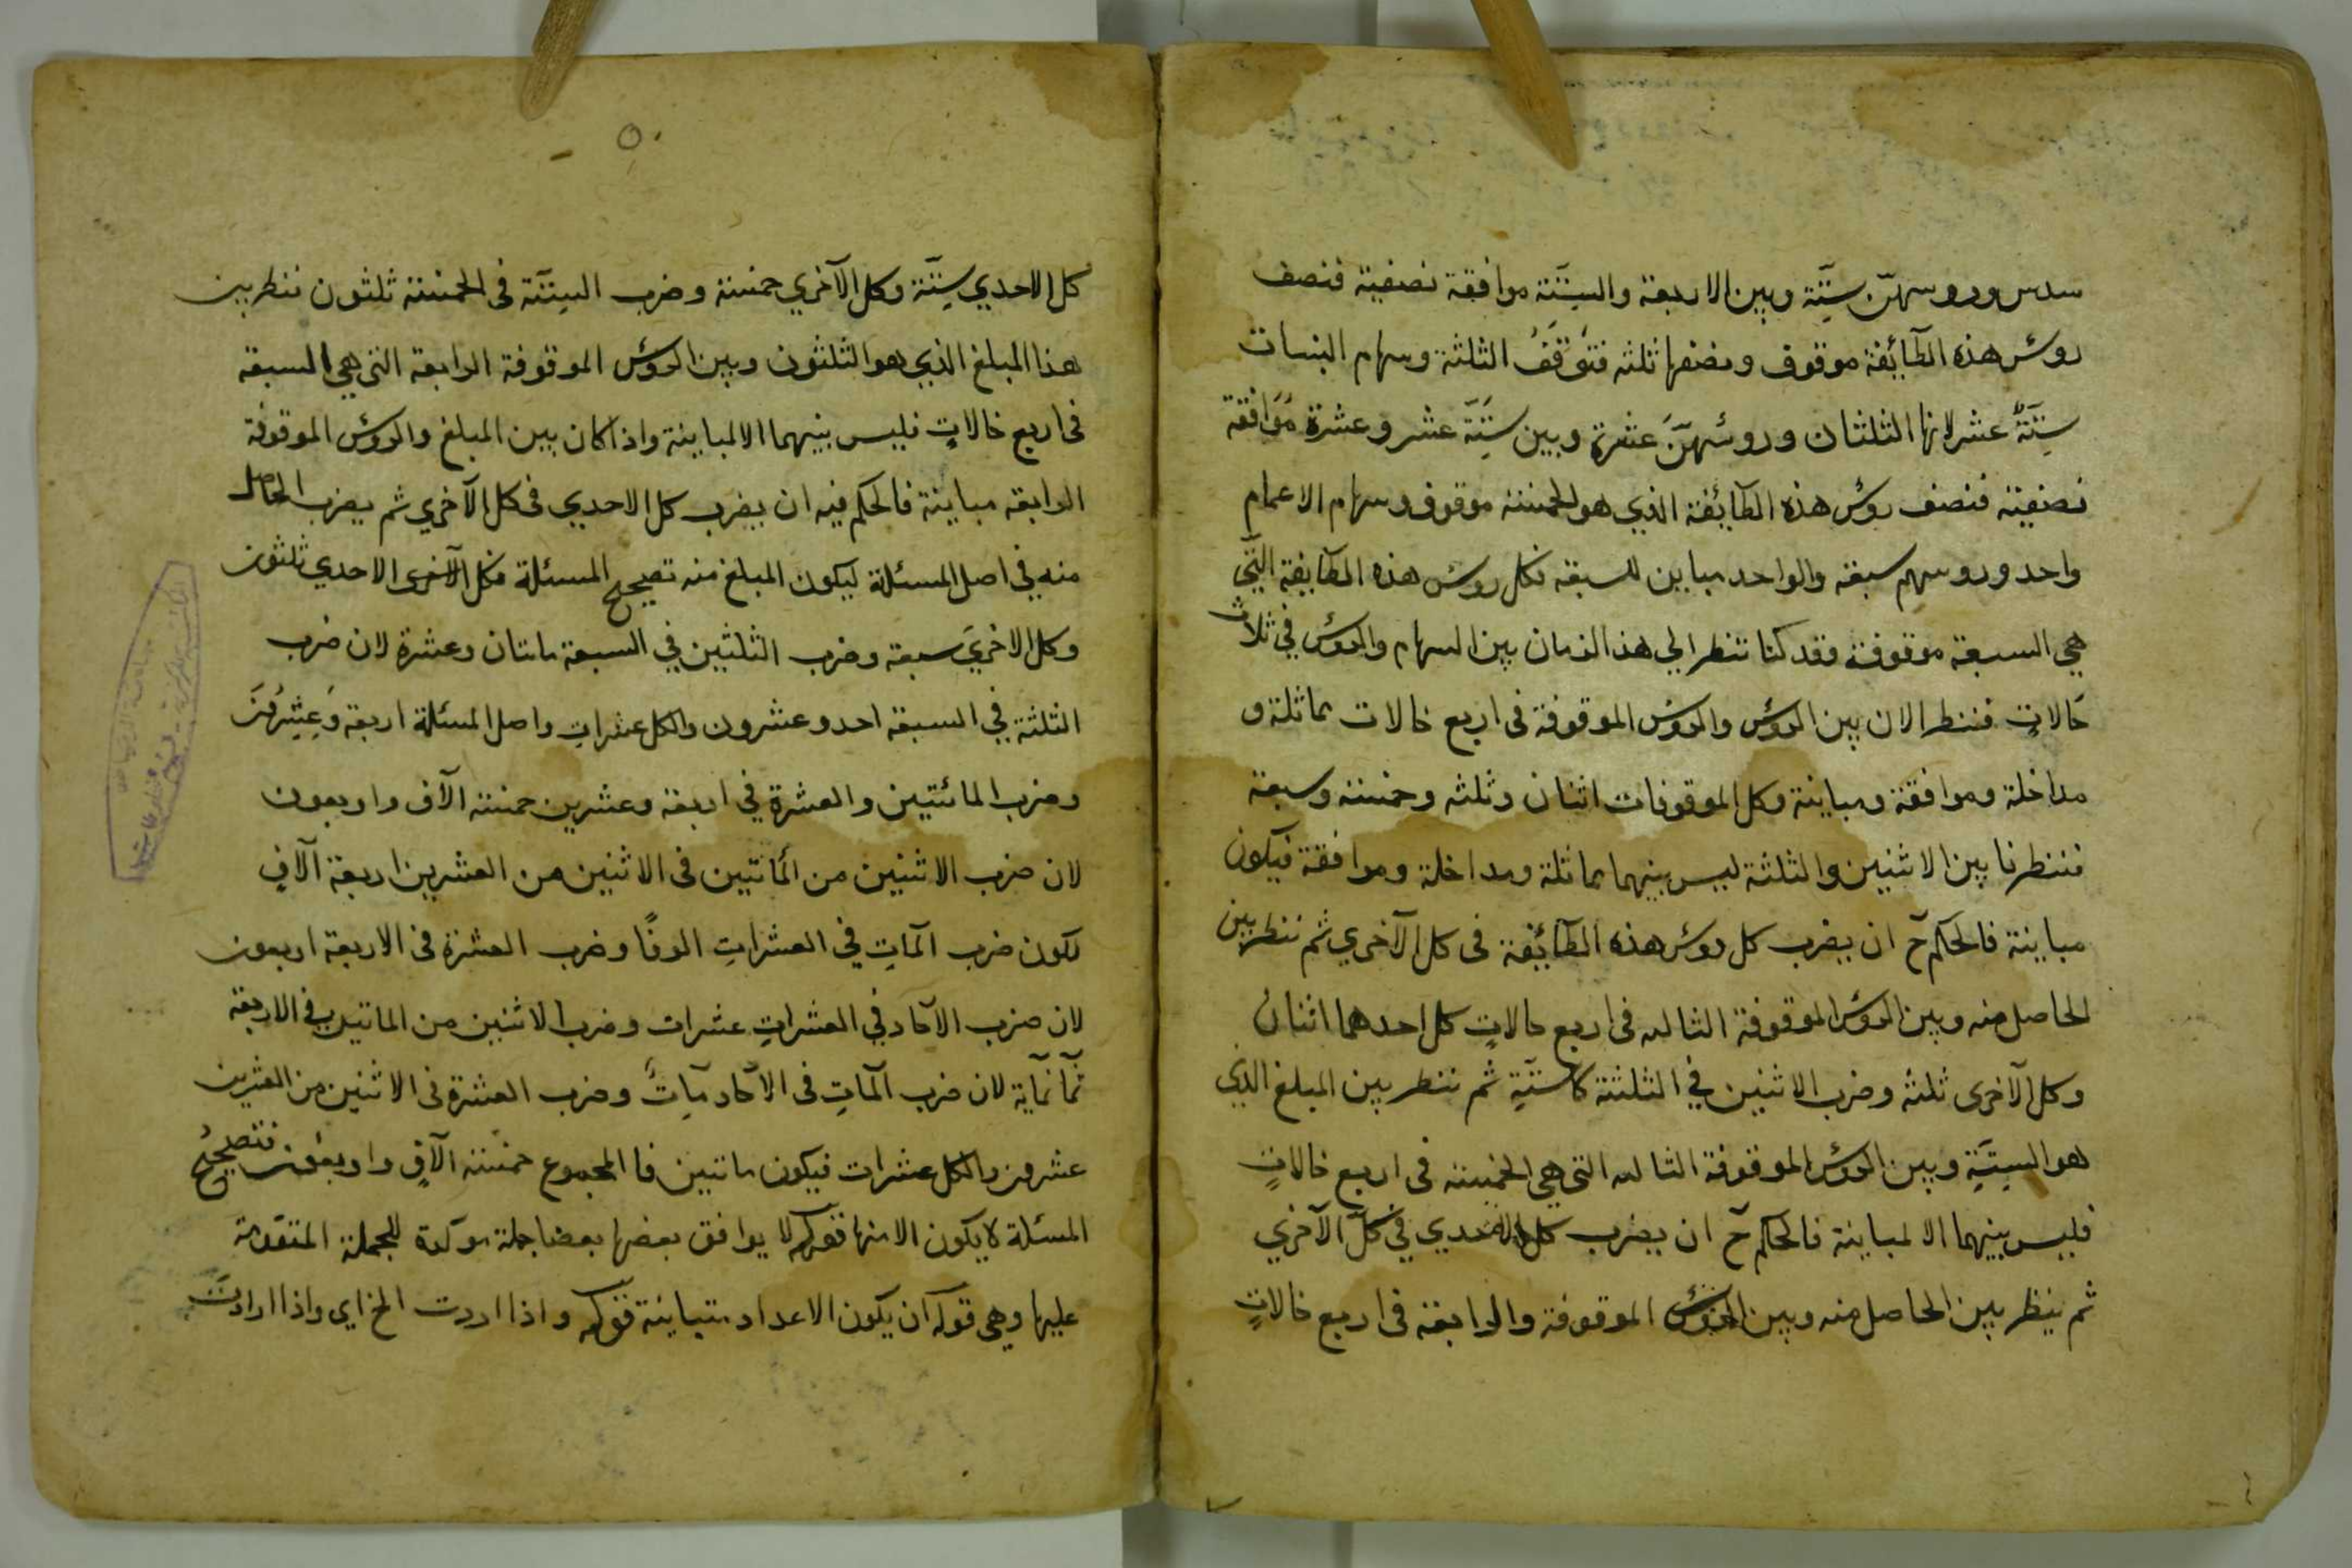 سدس وروسهنّ ستّة وبين الاربعة والستّة موافقة نصفية فنصف
روس هذه الطائفة موقوف ونصفها ثلثه فتوقف الثلثة وسهام البنات
ستّة عشر لانها الثلثان وروئسهنّ عشرة وبين ستّة عشر وعشرة موافقة
نصفية فنصف روس هذه الطائفة الذي هو الخمسة موقوف وسهام الاعمام
واحد وروسهم سبعة والواحد مباين للسبعة فكل روس هذه الطايفة التي
هي السبعة موقوفة فقد كنا ننظر الي هذا الزمان بين السهام والروس في ثلاث
حالاتٍ فننظر الان بين الروس والروس الموقوفة فى اربع حالات مماثلة و
مداخلة وموافقة ومباينة وكل الموقوفات اثنان وثلثه وخمسة وسبعة
فننظرنا بين الاثنين والثلثة ليس بينهما مماثلة ومداخلة وموافقة فيكون
مباينة فالحكم ح ان يضرب كل روس هذه الطائفة فى كل الآخري ثم ننظر بين
الحاصل منه وبين الروس الموقوفة الثالثه فى اربع حالاتٍ كل احدهما اثنان
وكل الآخرى ثلثه وضرب الاثنين في الثلثة كا ستّةٍ ثم ننظر بين المبلغ الذي
هو الستّة وبين الروس الموقوفة الثالثه التي هي الخمسة فى اربع حالاتٍ
فليس بينهما الا لمباينة فالحكم ح ان يضرب كل الاحدي في كلّ الآخري
ثم ينظر بين الحاصل منه وبين الروس الموقوفة والرابعة فى اربع حالاتٍ
٥٠
كل الاحدي ستّة وكل الآخري خمسة وضرب الستّة فى الخمسة ثلثون ننظر بين
هذا المبلغ الذي هو الثلثون وبين الروس الموقوفة الرابعة التي هي السبعة
فى اربع حالاتٍ فليس بينهما الا لمباينة واذا كان بين المبلغ والروس الموقوفة
الرابعة مباينة فالحكم فيه ان يضرب كل الاحدي فى كل الآخري ثم يضرب الحاصل
منه في اصل المسئلة ليكون المبلغ منه تصحيح المسئلة فكل الاحدي ثلثون
وكل الاخري سبعة وضرب الثلثين في السبعة ماىتان وعشرة لان ضرب
الثلثة في السبعة احد وعشرون والكل عشراتٍ واصل المسئلة اربعة وعشرون
وضرب المائتين والعشرة في اربعة وعشرين خمسة الآف واربعون
لان ضرب الاثنين من المأتين فى الاثنين من العشرين اربعة آلافٍ
لكون ضرب المآتِ في العشراتِ الوفًا وضرب العشرة فى الاربعة اربعون
لان ضرب الآحاد في العشراتِ عشرات وضرب الاثنين من الماتين في الاربعة
ثمآنمآية لان ضرب المآتِ فى الآحاد مآتٌ وضرب العشرة فى الاثنين من العشرين
عشرون والكل عشرات فيكون ماتين فا المجموع خمسة آلافٍ واربعون فتصحيح
المسئلة لا يكون الا منها قوله لا يوافق بعضها بعضا جملة موكدة للجملة المتقدمة
عليها وهي قوله ان يكون الاعداد متباينة قوله واذا اردت الخ اي واذا اردت